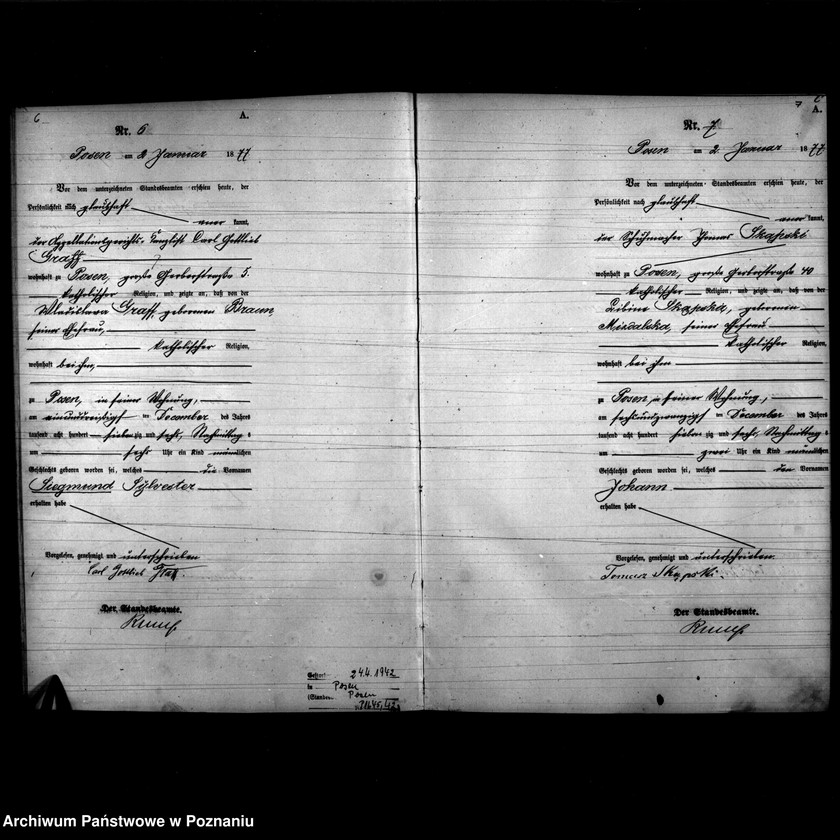 6
A.
Nr. 6
Posen am 2 Januar 1877
Vor dem unterzeichneten Standesbeamten erschien heute, der
Persönlichkeit nach glaubhaft
aner kannt,
der Appellationsgerichts-Canzlist Carl Gottlieb
Graff
wohnhaft zu Posen, große Gerberstraße 5.
katholischer Religion, und zeigte an, daß von der
Wladislawa Graff, geborenen Braun,
seiner Ehefrau,
katholischer Religion,
wohnhaft bei ihm,
zu Posen, in seiner Wohnung,
am einunddreißigst ten December des Jahres
tausend acht hundert sieben zig und sechs, Nachmittags
um sechs Uhr ein Kind männlichen
Geschlechts geboren worden sei, welches die Vornamen
Siegmund Sylvester
erhalten habe
Vorgelesen, genehmigt und unterschrieben
Carl Gottlieb Graff.
Der Standesbeamte.
24.4.1942
in Posen
Posen
7
A.
Nr. 7
Posen am 2. Januar 1877
Vor dem unterzeichneten Standesbeamten erschien heute, der
Persönlichkeit nach glaubhaft
aner kannt,
der Schuhmacher Thomas Skapski
wohnhaft zu Posen, große Gerberstraße 40
katholischer Religion, und zeigte an, daß von der
Skapska, geborenen
seiner Ehefrau
katholischer Religion,
wohnhaft bei ihm
zu Posen, in seiner Wohnung,
am sechsundzwanzigst ten December des Jahres
tausend acht hundert sieben zig und sechs, Nachmittags
um zwei Uhr ein Kind männlichen
Geschlechts geboren worden sei, welches den Vornamen
Johann
erhalten habe
Vorgelesen, genehmigt und unterschrieben.
Tomasz Skąpski.
Der Standesbeamte.
Archiwum Państwowe w Poznaniu